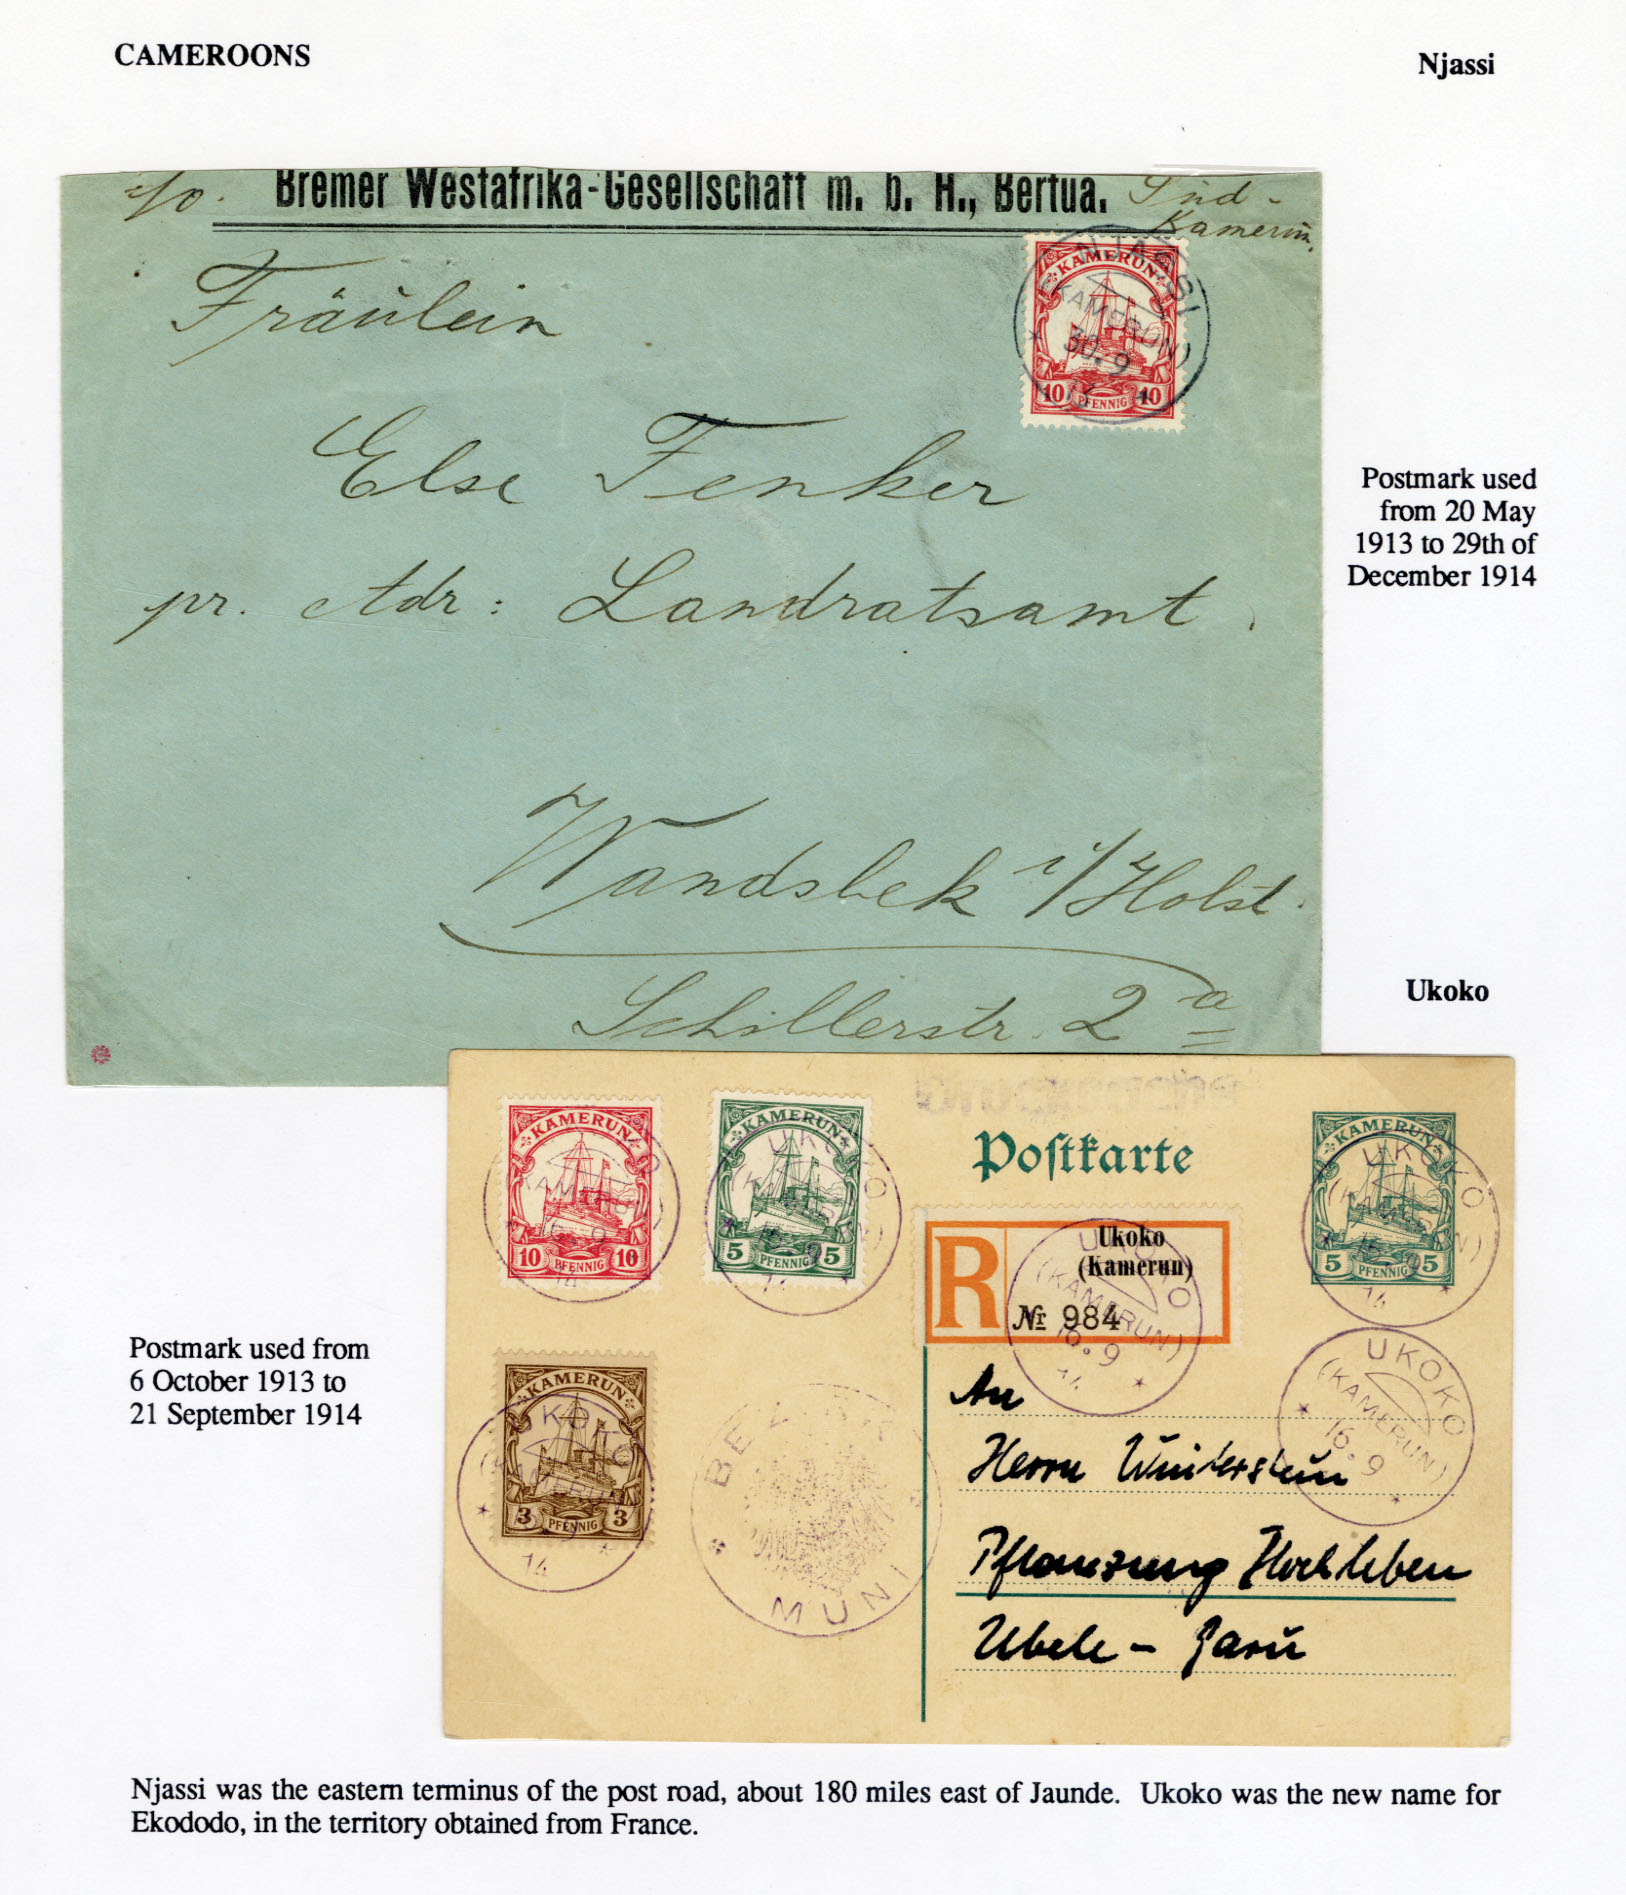 CAMEROONS
Njassi
Bremer Westafrika-Gesellschaft m. b. H., Bertua.
Süd-
Kamerun.
KAMERUN
10 PFENNIG 10
NJASSI
(KAMERUN)
30.9
Fräulein
Else Fenker
pr. Adr: Landratsamt
Wandsbek i/Holst.
Schillerstr. 2a
Postmark used
from 20 May
1913 to 29th of
December 1914
Ukoko
KAMERUN
10 PFENNIG 10
KAMERUN
5 PFENNIG 5
UKOKO
(KAMERUN)
14
Postkarte
KAMERUN
5 PFENNIG 5
UKOKO
(KAMERUN)
14
R
Ukoko
(Kamerun)
Nr 984
UKOKO
(KAMERUN)
16.9
14
UKOKO
(KAMERUN)
16.9
KAMERUN
3 PFENNIG 3
14
BEZIRK
MUNI
An
Herrn Winterstein
Pflanzung Hochleben
Ubele -
Postmark used from
6 October 1913 to
21 September 1914
Njassi was the eastern terminus of the post road, about 180 miles east of Jaunde. Ukoko was the new name for
Ekododo, in the territory obtained from France.